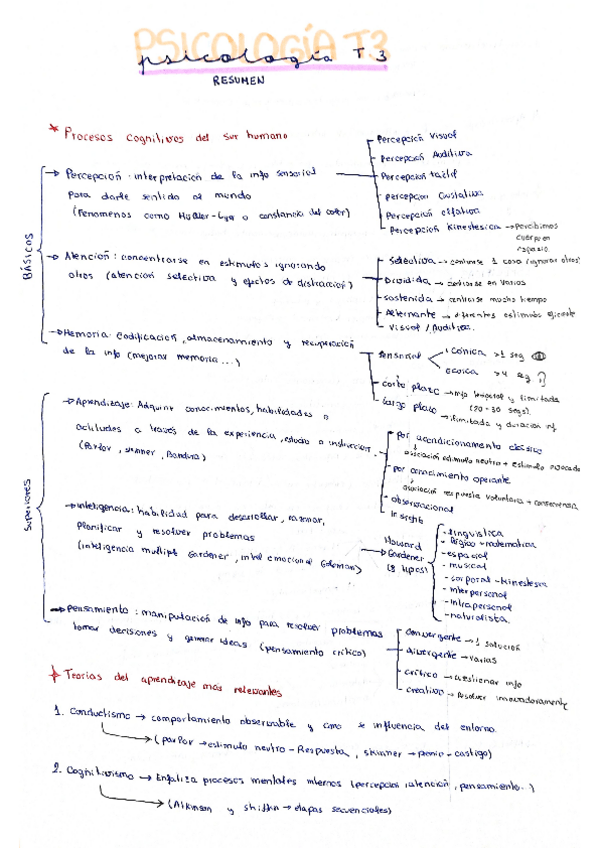 PSICOLOGÍA T3
psicología T.3
RESUMEN
* Procesos cognitivos del ser humano
BÁSICOS
→ Percepción: interpretación de la info sensorial
para darle sentido al mundo
(Fenómenos como Müller-Lyer o constancia del color)
Percepción visual
Percepción Auditiva
Percepción táctil
percepción Gustativa
Percepción olfativa
Percepción Kinestésica → percibimos
cuerpo en
espacio.
→ Atención: concentrarse en estímulos ignorando
otros (atención selectiva y efectos de distracción)
Selectiva → centrarse 1 cosa (ignorar otros)
Dividida → centrarse en varios
sostenida → centrarse mucho tiempo
Alternante → diferentes estímulos
visual / Auditiva.
→ Memoria: codificación, almacenamiento y recuperación
de la info (mejorar memoria...)
sensorial
icónica >1 seg
ecoica >4 seg
corto plazo → info temporal y limitada
(20-30 segs)
largo plazo → ilimitada y duración
Superiores
→ Aprendizaje: Adquirir conocimientos, habilidades o
actitudes a través de la experiencia, estudio o instrucción.
(Pavlov, skinner, Bandura)
por acondicionamiento clásico
asociación estímulo neutro + estímulo
por operante
asociación respuesta voluntaria + consecuencia
observacional
Insight
→ inteligencia: habilidad para desarrollar, razonar,
planificar y resolver problemas
(inteligencia múltiple Gardener, intel emocional Goleman)
Howard
Gardener
(8 tipos)
- lingüística
- lógico-matemática
- espacial
- musical
- corporal-kinestesica
- interpersonal
- intrapersonal
- naturalista
→ pensamiento: manipulación de info para resolver problemas
tomar decisiones y generar ideas (pensamiento crítico)
convergente → 1 solución
divergente → varias
crítico → cuestionar info
creativo → resolver innovadoramente
* Teorías del aprendizaje más relevantes
1. Conductismo → comportamiento observable y como se influencia del entorno.
→ ( → estimulo neutro - Respuesta, skinner → premio - castigo)
2. Cognitivismo → Enfatiza procesos mentales internos (percepción, atención, pensamiento..)
→ (Atkinson y shiffrin → etapas secuenciales)